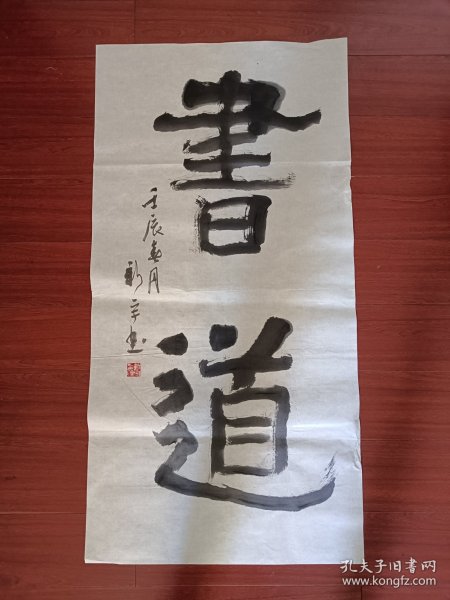 書道
壬辰春月
新宇书
孔夫子旧书网
www.kongfz.com